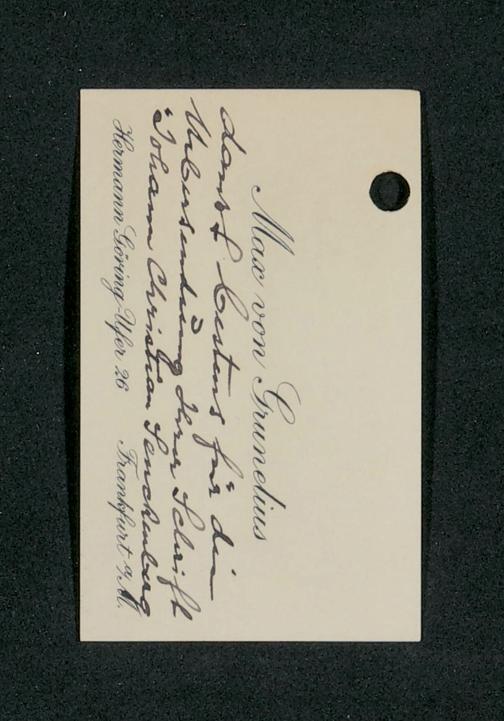 Max von Grunelius
dankt bestens für die
Uebersendung Ihrer Schrift
"Johann Christian Senckenberg
Hermann Göring-Ufer 26 Frankfurt a/M.